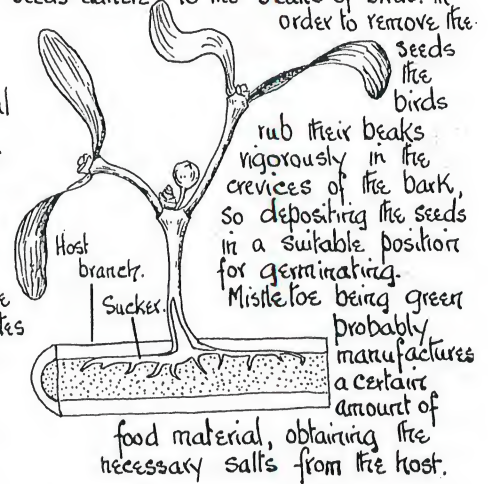 seeds adhere to the beaks of birds. In
order to remove the
seeds
the
birds
rub their beaks
vigorously in the
crevices of the bark,
so depositing the seeds
in a suitable position
for germinating.
Mistletoe being green
probably
manufactures
a certain
amount of
food material, obtaining the
necessary salts from the host.
Host
branch.
Sucker.
al
e
tes